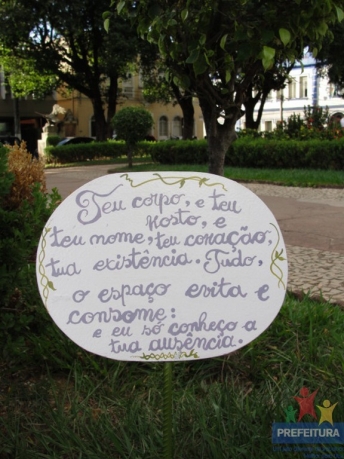 Teu corpo, e teu
Rosto, e
teu nome, teu coração,
tua existência. Tudo,
o espaço evita e
consome:
e eu só conheço a
tua ausência.
PREFEITURA